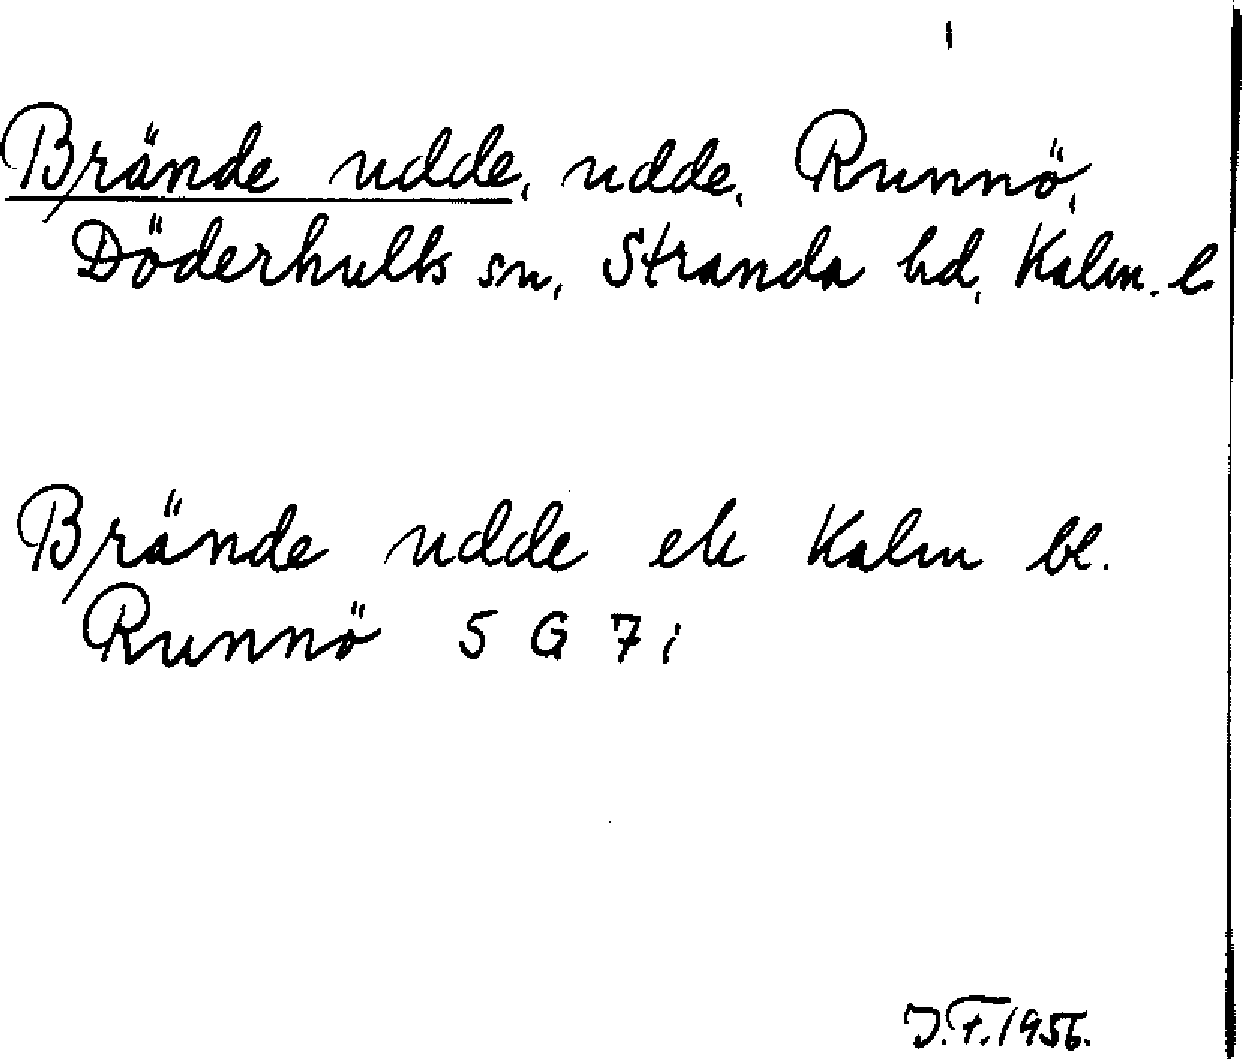 Brände udde, udde, Runnö,
Döderhults sn, Stranda hd, Kalm. l
Brände udde ek Kalm bl.
Runnö 5 G 7 i
J.F. 1956.